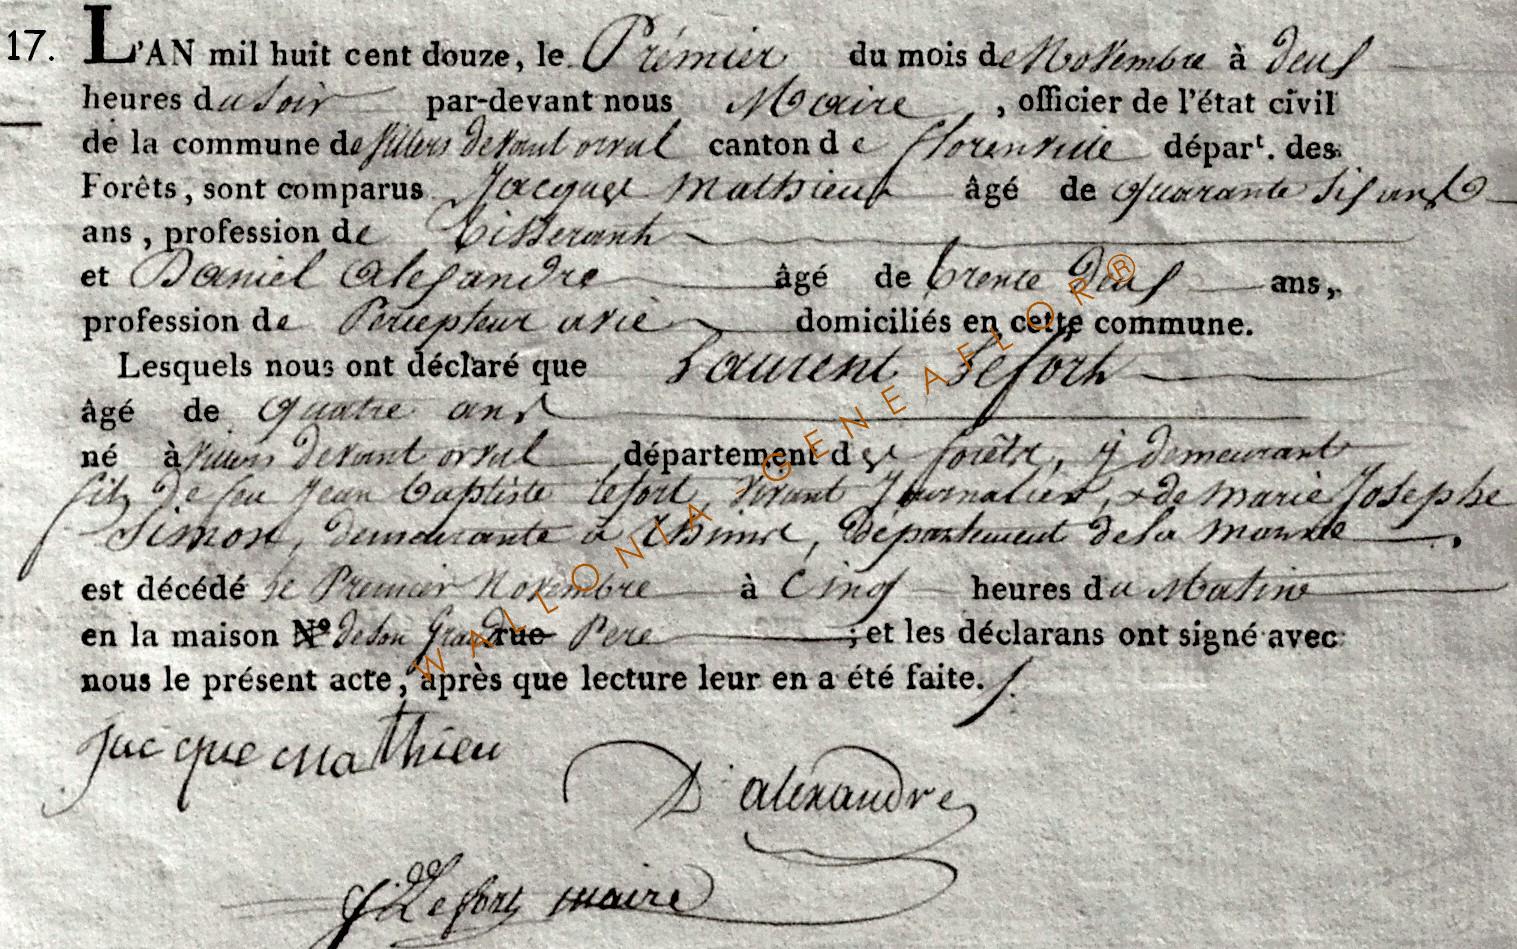 17. L'AN mil huit cent douze, le Prémier du mois de Novembre à deux
heures du Soir par-devant nous Maire, officier de l'état civil
de la commune de Villers devant orval canton de florenville départ. des
Forêts, sont comparus Jacques Mathieux âgé de quarante six ans
ans, profession de Tisserant
et Daniel Alexandre âgé de trente deux ans,
profession de Percepteur domiciliés en cette commune.
Lesquels nous ont déclaré que Laurent Lefort
âgé de quatre ans
né à villers devant orval département des forêts, y demeurant
fils de feu Jean baptiste lefort, vivant Journalier, & de marie Josephe
Simon, demeurante a, département de la marne.
est décédé le Premier Novembre à Cinq heures du Matin
en la maison N° de son Grand rue Pere; et les déclarans ont signé avec
nous le présent acte, après que lecture leur en a été faite.
Jacque mathieu
D alexandre
Lefort maire
WALLONIA - GENEAFLOR ®